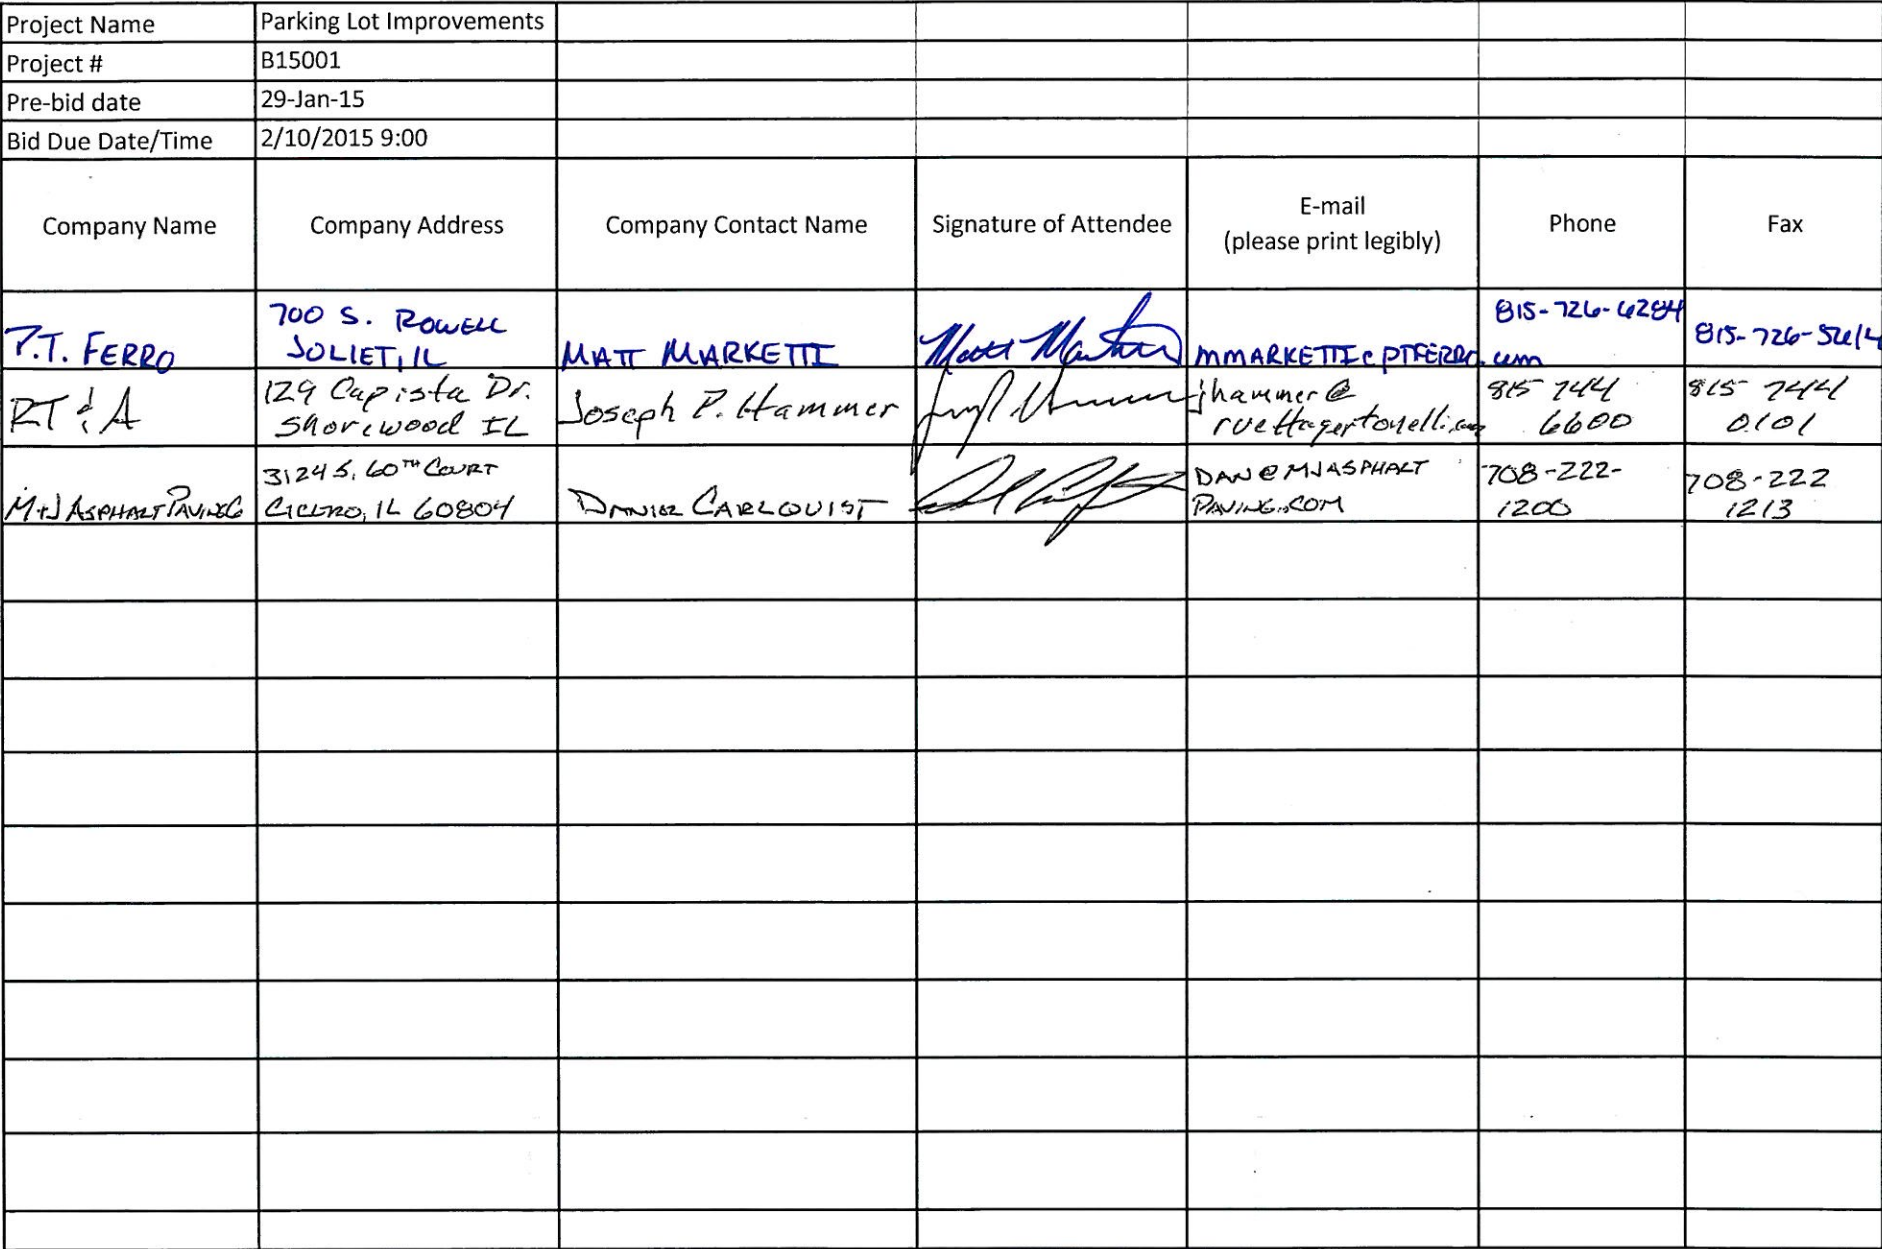 Project Name Parking Lot Improvements
Project # B15001
Pre-bid date 29-Jan-15
Bid Due Date/Time 2/10/2015 9:00
Company Name Company Address Company Contact Name Signature of Attendee E-mail
(please print legibly) Phone Fax
P.T. FERRO
700 S. ROWELL
JOLIET, IL
MATT MARKETTI
MMARKETTI@PTFERRO.com
815-726-6284
RT & A
129 Capista Dr.
Shorewood IL
Joseph P. Hammer
jhammer@
ruettigertonelli.com
815 744
6600
815 744
0101
M+J ASPHALT PAVING
3124 S. 60TH COURT
CICERO, IL 60804
DANIEL CARLQUIST
DAN@MJASPHALT
PAVING.COM
708-222-
1200
708-222
1213